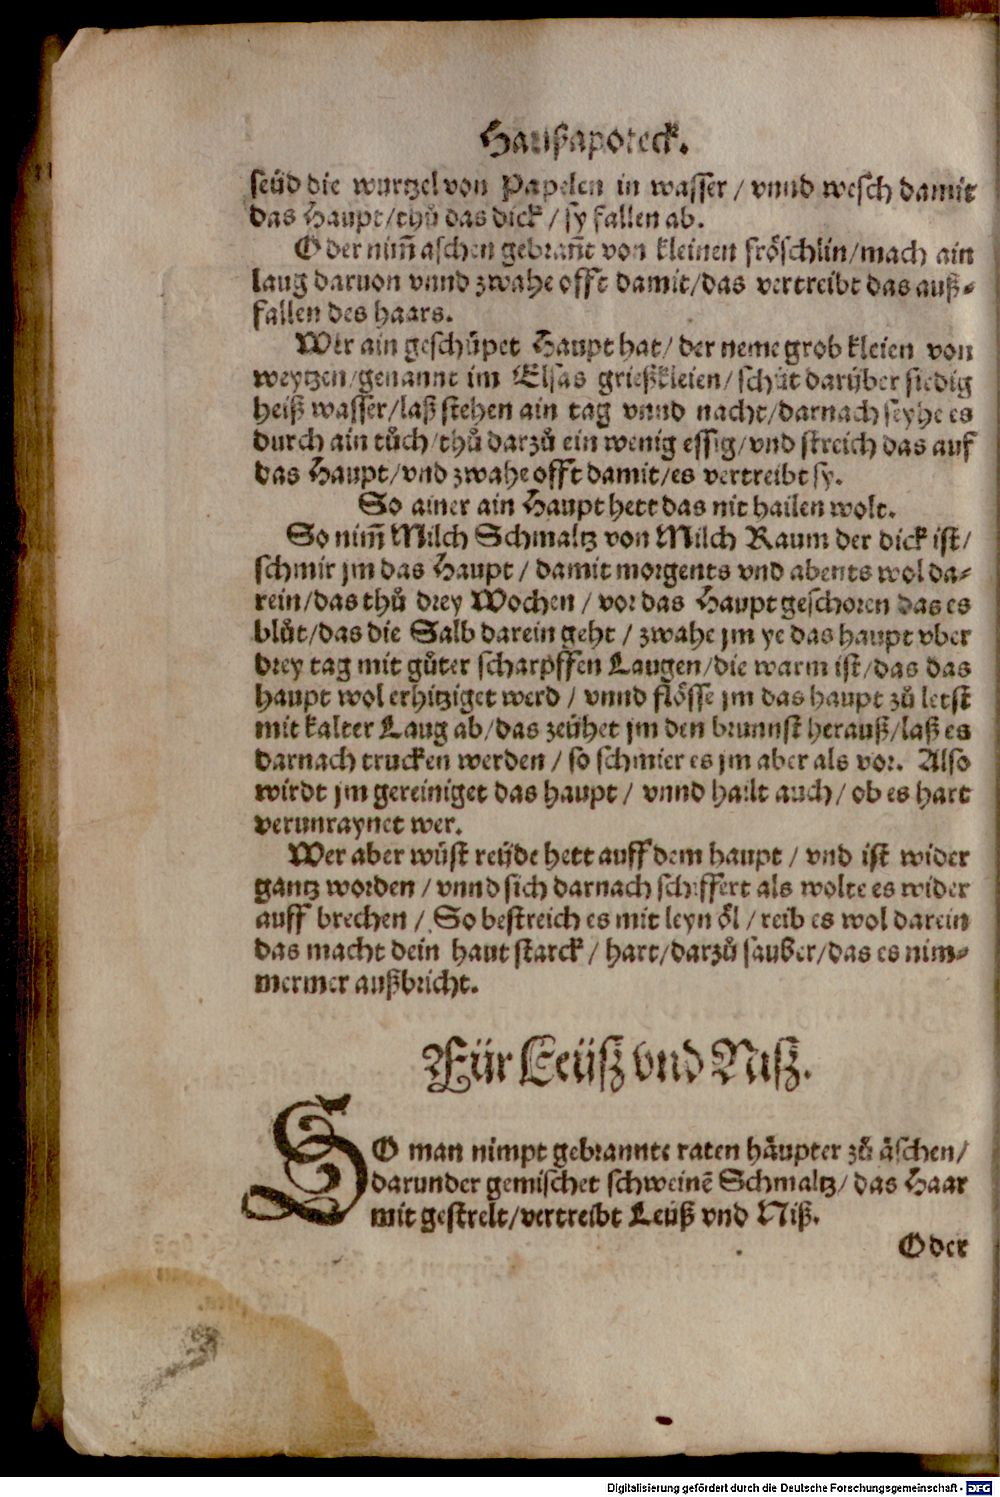 Haußapoteck.
seüd die wurtzel von Papelen in wasser / vnnd wesch damit
das Haupt / thů das dick / sy fallen ab.
Oder nim̃ aschen gebrañt von kleinen fröschlin / mach ain
laug daruon vnnd zwahe offt damit / das vertreibt das auß-
fallen des haars.
Wer ain geschüpet Haupt hat / der neme grob kleien von
weytzen / genannt im Elsas grießkleien / schüt darüber siedig
heiß wasser / laß stehen ain tag vnnd nacht / darnach seyhe es
durch ain tůch / thů darzů ein wenig essig / vnd streich das auf
das Haupt / vnd zwahe offt damit / es vertreibt sy.
So ainer ain Haupt hett das nit hailen wolt.
So nim̃ Milch Schmaltz von Milch Raum der dick ist /
schmir jm das Haupt / damit morgents vnd abents wol da-
rein / das thů drey Wochen / vor das Haupt geschoren das es
blůt / das die Salb darein geht / zwahe jm ye das haupt vber
drey tag mit gůter scharpffen Laugen / die warm ist / das das
haupt wol erhitziget werd / vnnd flösse jm das haupt zů letst
mit kalter Laug ab / das zeühet jm den brunnst herauß / laß es
darnach trucken werden / so schmier es jm aber als vor. Also
wirdt jm gereiniget das haupt / vnnd hailt auch / ob es hart
verunraynet wer.
Wer aber wüst reüde hett auff dem haupt / vnd ist wider
gantz worden / vnnd sich darnach schiffert als wolte es wider
auff brechen / So bestreich es mit leyn öl / reib es wol darein
das macht dein haut starck / hart / darzů sauber / das es nim-
mermer außbricht.
Für Leüsz vnd Nisz.
SO man nimpt gebrannte raten häupter zů äschen /
darunder gemischet schweinẽ Schmaltz / das Haar
mit gestrelt / vertreibt Leüß vnd Niß.
Oder
Digitalisierung gefördert durch die Deutsche Forschungsgemeinschaft - DFG